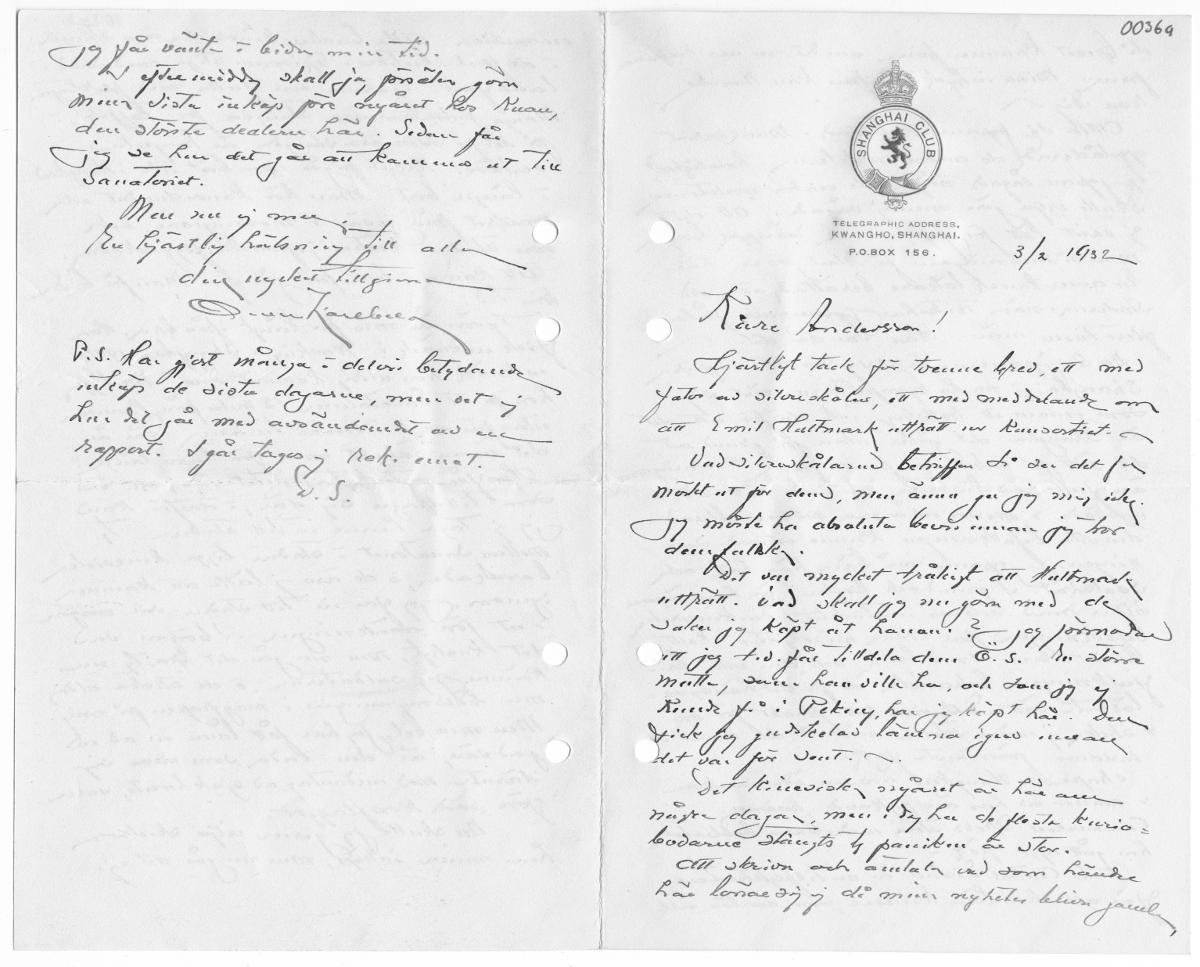 jag får vänta o bida min tid.
I eftermiddag skall jag försöka göra
mina sista inköp före nyåret hos Kuan,
den största dealern här. Sedan får
jag se hur det går att komma ut till
Sanatoriet.
Men nu ej mera.
En hjärtlig hälsning till alla
din mycket tillgivna
Orvar Karlbeck
P.S. Har gjort många o delvis betydande
inköp de sista dagarne, men vet ej
hur det går med avsändandet av en
rapport. Igår togos ej rek. emot.
D. S.
00369
SHANGHAI CLUB
TELEGRAPHIC ADDRESS,
KWANGHO, SHANGHAI.
P.O.BOX 156.
3/2 1932
Käre Andersson!
Hjärtligt tack för tvenne brev, ett med
foton av silverskålar, ett med meddelande om
att Emil Hultmark utträtt ur Konsortiet.
Vad silverskålarne beträffar så ser det ju
mörkt ut för dem, men ännu ger jag mig icke.
Jag måste ha absoluta bevis innan jag tror
dem falska.
Det var mycket tråkigt att Hultmark
utträtt. Vad skall jag nu göra med de
saker jag köpt åt honom? Jag förmodar
att jag t.v. får tilldela dem Ö. S. En större
matta, som han ville ha, och som jag ej
kunde få i Peking, har jag köpt här. Den
fick jag gudskelov lämna igen innan
det var för sent.
Det kinesiska nyåret är här om
några dagar, men i dag ha de flesta kurio=
bodarne stängts ty paniken är stor.
Att skriva och omtala vad som händer
här lönar sig ej då mina nyheter bliva gamla,